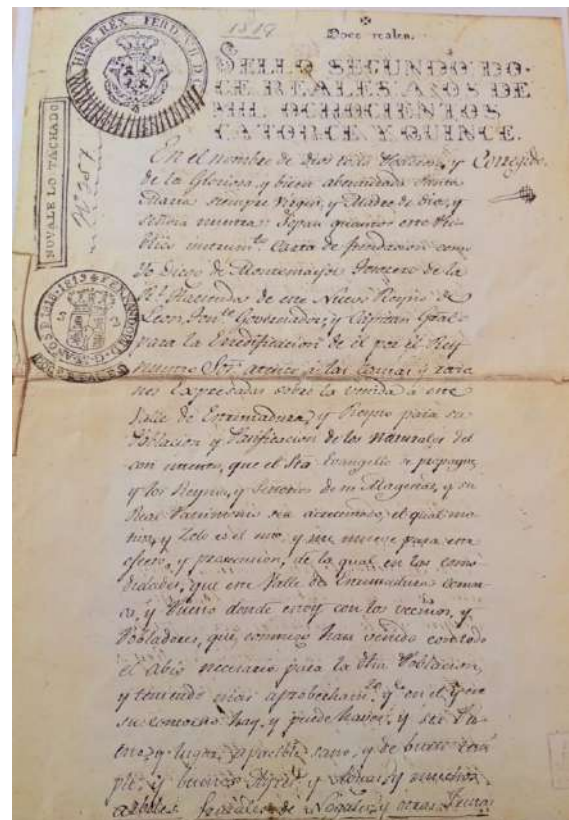 1817
Doce reales.
HISP. REX. FERD. VII. D. G.
SELLO SEGUNDO DO-
CE REALES, AÑOS DE
MIL OCHOCIENTOS
CATORCE Y QUINCE.
NOVALE LO TACHADO
En el nombre de Dios y Corregido.
de la Gloriosa, y bien abenturada Santa
Maria siempre Virgen, y Madre de Dios, y
Señora nuestra: Sepan quantos este Pu-
blico Carta de fundacion como
Yo Diego de Montemayor Tesorero de la
Rl. Hacienda de este Nuevo Reyno de
Leon, Governador, y Capitan Gral.
para la Reedificacion de él por el Rey
nuestro Sor. atento á las causas, y razo
nes Expresadas sobre la venida á este
Valle de Extremadura, y Reyno para su
Poblacion y Pasificacion de los naturales del
que el Sto. Evangelio se propague,
y los Reynos, y Señorios de su Magestad, y su
Real Patrimonio sea el qual mo-
tivo, y Zelo es el mio, y me mueve para este
efecto, y de la qual, en las como
didades, que este Valle de Extremadura
y Puesto donde estoy con los vecinos, y
Pobladores, que conmigo han venido con todo
el abio necesario para la dha Poblacion,
y teniendo mas aprobechamto. qe. en él, y por
su contorno hay, y puede haver, y ser
y lugar apacible, sano, y de buen tem
ple, y buenos Ayres, y Aguas, y muchos
arboles frutales de Nogales, y otras frutas